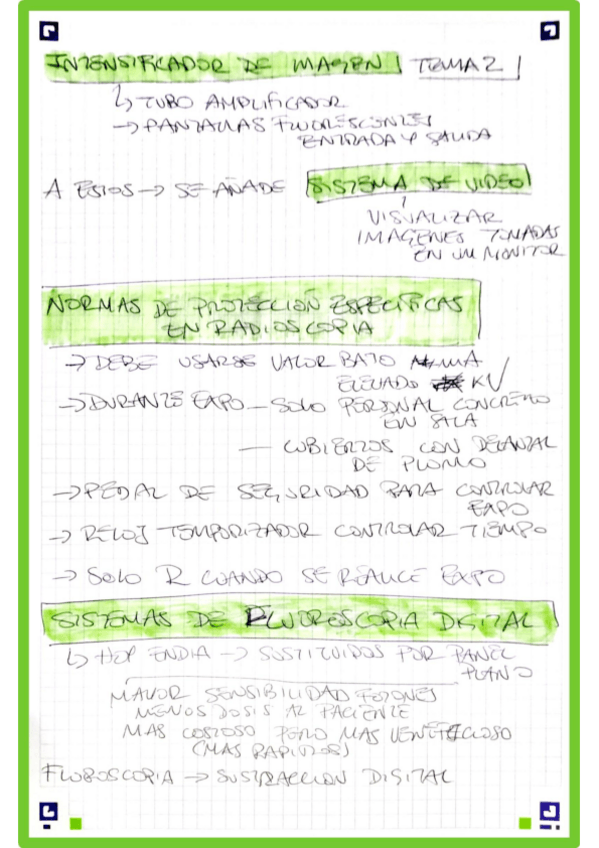 INTENSIFICADOR DE IMAGEN | TEMA 2
↳ TUBO AMPLIFICADOR
→ PANTALLAS FLUORESCENTES
ENTRADA Y SALIDA
A ESTOS → SE AÑADE SISTEMA DE VIDEO
VISUALIZAR
IMAGENES TOMADAS
EN UN MONITOR
NORMAS DE PROTECCION ESPECIFICAS
EN RADIOSCOPIA
→ DEBE USARSE VALOR BAJO MA
ELEVADO KV
→ DURANTE EXPO — SOLO PERSONAL CONCRETO
EN SALA
— CUBIERTOS CON DELANTAL
DE PLOMO
→ PEDAL DE SEGURIDAD PARA CONTROLAR
EXPO
→ RELOJ TEMPORIZADOR CONTROLAR TIEMPO
→ SOLO R CUANDO SE REALICE EXPO
SISTEMAS DE FLUOROSCOPIA DIGITAL
↳ HOY EN DIA → SUSTITUIDOS POR PANEL
PLANO
MAYOR SENSIBILIDAD FOTONES
MENOS DOSIS AL PACIENTE
MAS COSTOSO PERO MAS
(MAS RAPIDOS)
→ SUSTRACCION DIGITAL